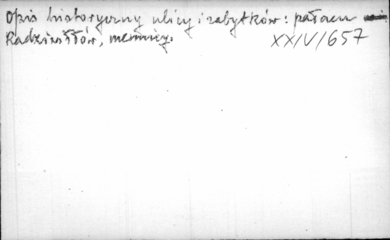 Opis historyczny ulicy i zabytków: pałacu
Radziwiłłów, mennicy.
XXIV/657